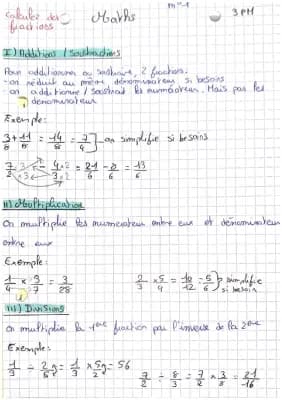 Calculer des fractions
Maths
3 PM
I) Additions / Soustractions
Pour additionner ou soustraire, 2 fractions.
- on réduit au même dénominateur si besoins
- on additionne / soustrait les numérateur. Mais pas les dénominateur
Exemple:
3+11/8 = 14/8 = 7/4 } on simplifie si besoins
7/2 × 3/3 - 4×2/3×2 = 21/6 - 8/6 = 13/6
II) Multiplication
On multiplie les numerateur entre eux et dénominateur
entre eux
Exemple:
1/4 × 3/7 = 3/28
2/3 × 5/4 = 10/12 = 5/6 } simplifie si besoin
III) Divisions
On multiplie la 1ère fraction par l'inverse de la 2eme
Exemple:
7/2 ÷ 8/3 = 7/2 × 3/8 = 21/16